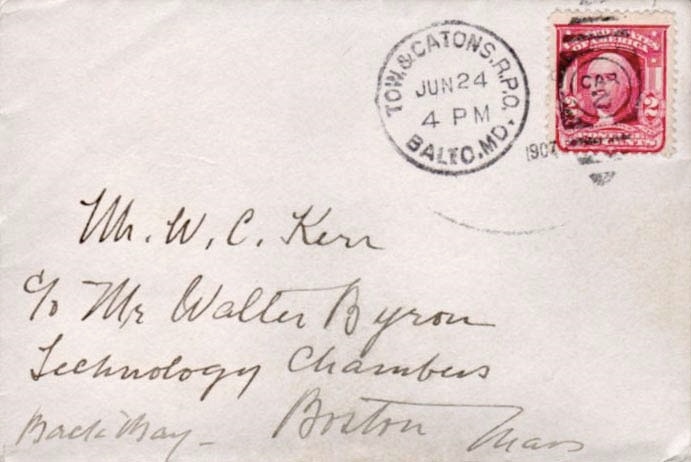 TOW. & CATONS. R.P.O.
JUN 24
4 PM
BALTO. MD.
1907
UNITED STATES
OF AMERICA
CAR
2
2 2
CENTS
Mr. W. C. Kerr
c/o Mr Walter Byron
Technology Chambers
Back Bay - Boston Mass